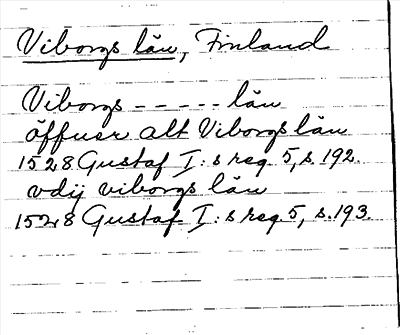 Viborgs län, Finland
Viborgs - - - - - län
öffuer alt Viborgs län
1528 Gustaf I:s reg. 5, s. 192.
vdij viborgs län
1528 Gustaf I:s reg. 5, s. 193.